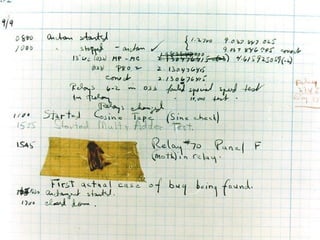 9/9
0800 Antan started
1000 " stopped - antan ✓ { 1.2700 9.037 847 025
9.037 846 995 correct
13"uc (032) MP-MC 4.615925059(-2)
(033) PRO 2 2.130476415
correct 2.130676415
Relays 6-2 in 033 failed special speed test
in relay " 10.000 test.
Relays changed
1100 Started Cosine Tape (Sine check)
1525 Started Multi Adder Test.
1545 Relay #70 Panel F
(moth) in relay.
First actual case of bug being found.
antangent started.
1700 closed down.